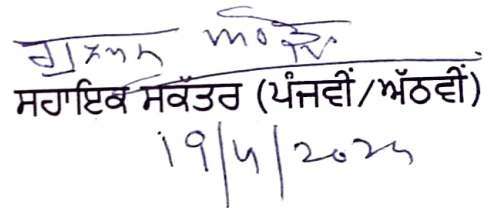 ਸਹਾਇਕ ਸਕੱਤਰ (ਪੰਜਵੀਂ/ਅੱਠਵੀਂ)
19/5/2025